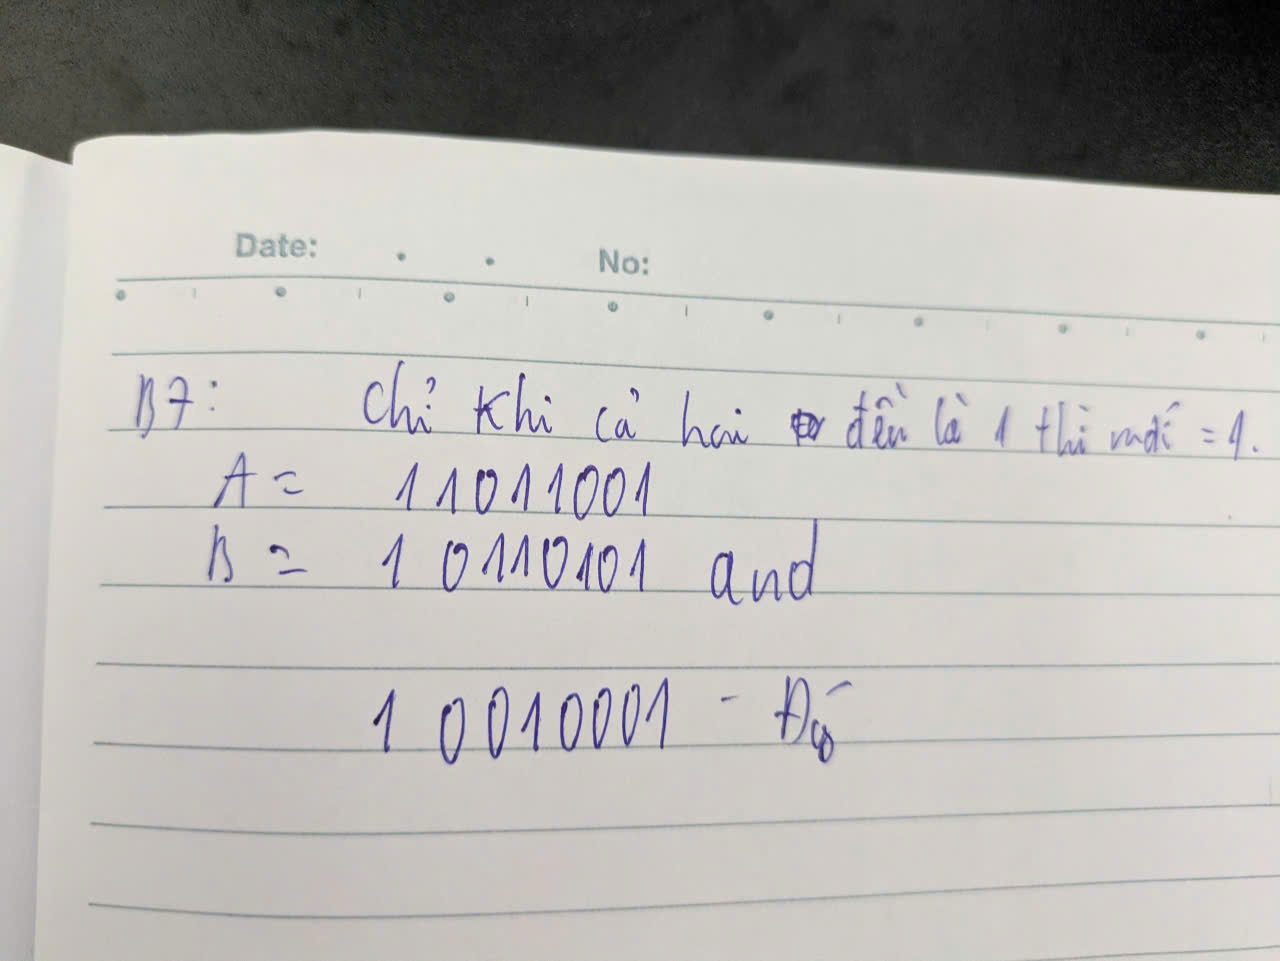 Date: . . No:
B7: Chỉ khi cả hai đều là 1 thì mới = 1.
A = 11011001
B = 10110101 and
10010001 -